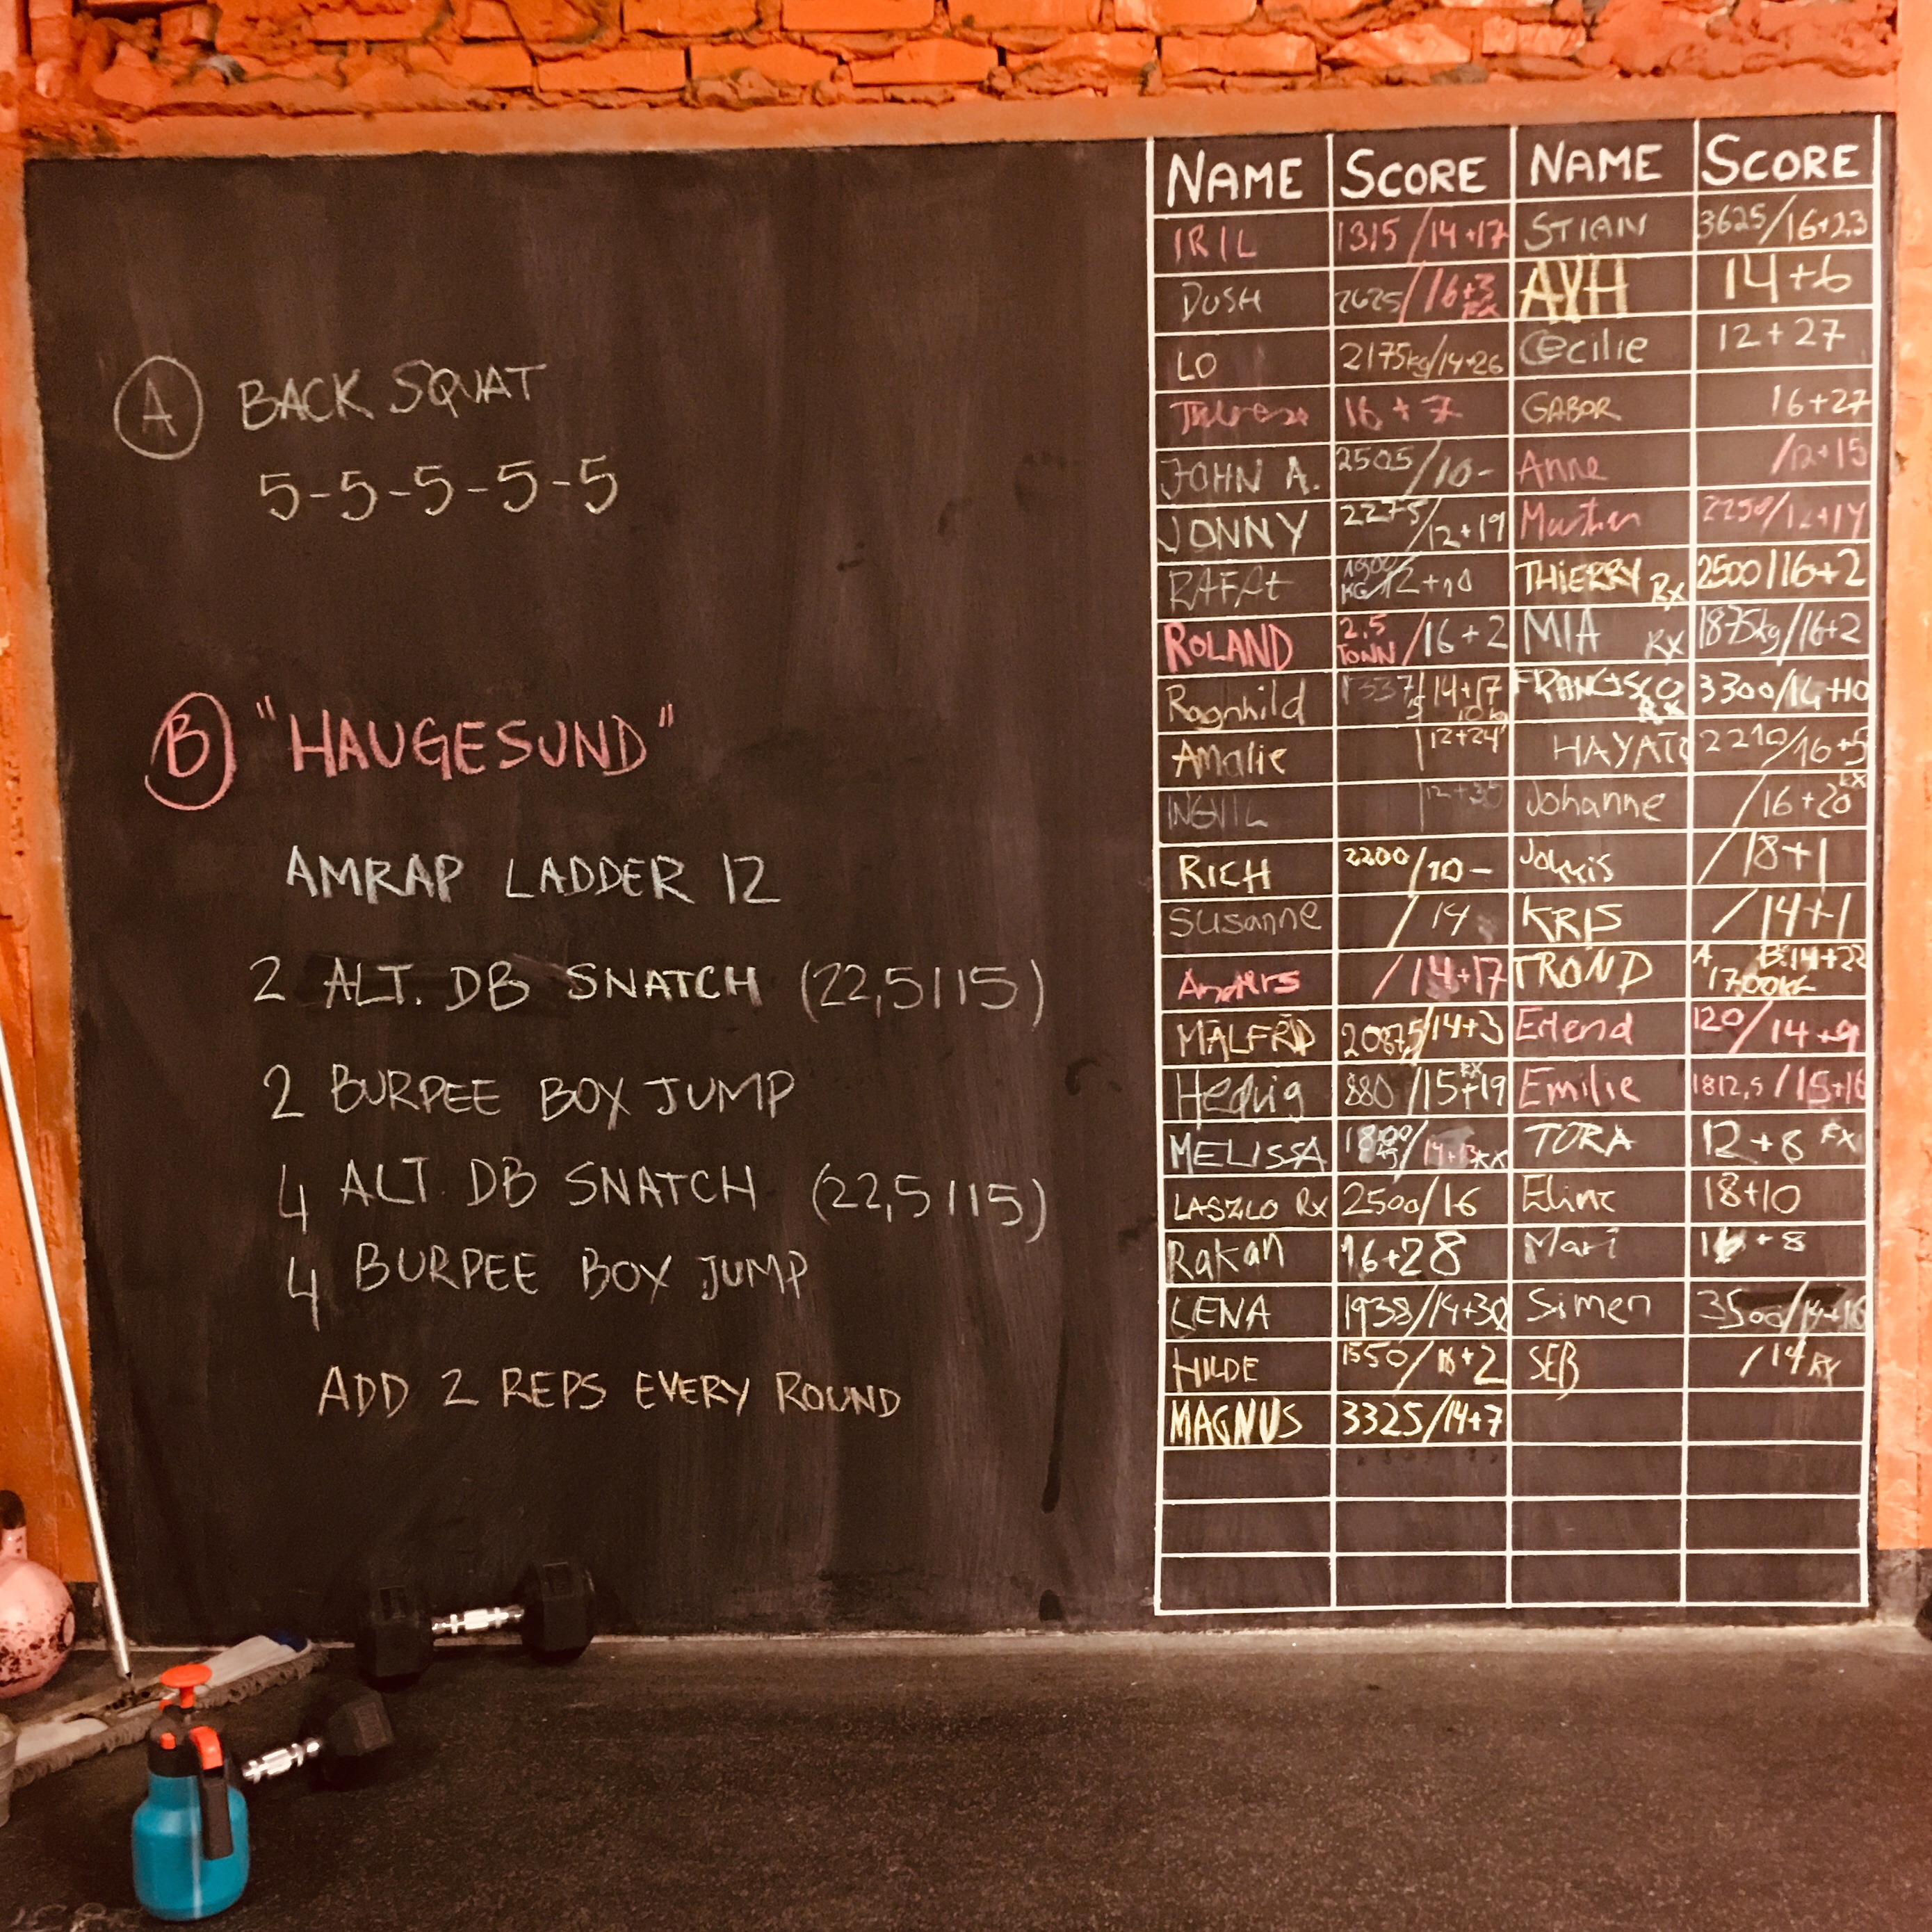 A BACK SQUAT
5-5-5-5-5
B "HAUGESUND"
AMRAP LADDER 12
2 ALT. DB SNATCH (22,5/15)
2 BURPEE BOX JUMP
4 ALT. DB SNATCH (22,5/15)
4 BURPEE BOX JUMP
ADD 2 REPS EVERY ROUND
NAME SCORE NAME SCORE
IRIL 1315/14+17 STIAN 3625/16+23
DUSH 2625/16+3 RX 14+6
LO 2175kg/14+26 Cecilie 12+27
16+7 GABOR 16+27
JOHN A. 2505/10- Anne /12+15
JONNY 2275/12+19 2250/12+14
12+10 THIERRY RX 2500/16+2
ROLAND 2.5 TONN/16+2 MIA RX 1875kg/16+2
Ragnhild 14+17 FRANCISCO RX 3300/
Amalie 12+24 HAYATO 2210/16+5
Johanne /16+20 RX
RICH 2200/10- /18+1
Susanne /14 KRIS /14+1
Anders /14+17 TROND A B:14+22
MALFRID 14+3 Erlend 120/14+9
Hedvig 880/15+19 RX Emilie 1812,5/15+16
MELISSA TORA 12+8 RX
LASZLO RX 2500/16 Eline 18+10
Rakan 16+28 Mari +8
LENA 1938/14+30 Simen 3500/
HILDE 1550/ +2 SEB /14 RX
MAGNUS 3325/14+7